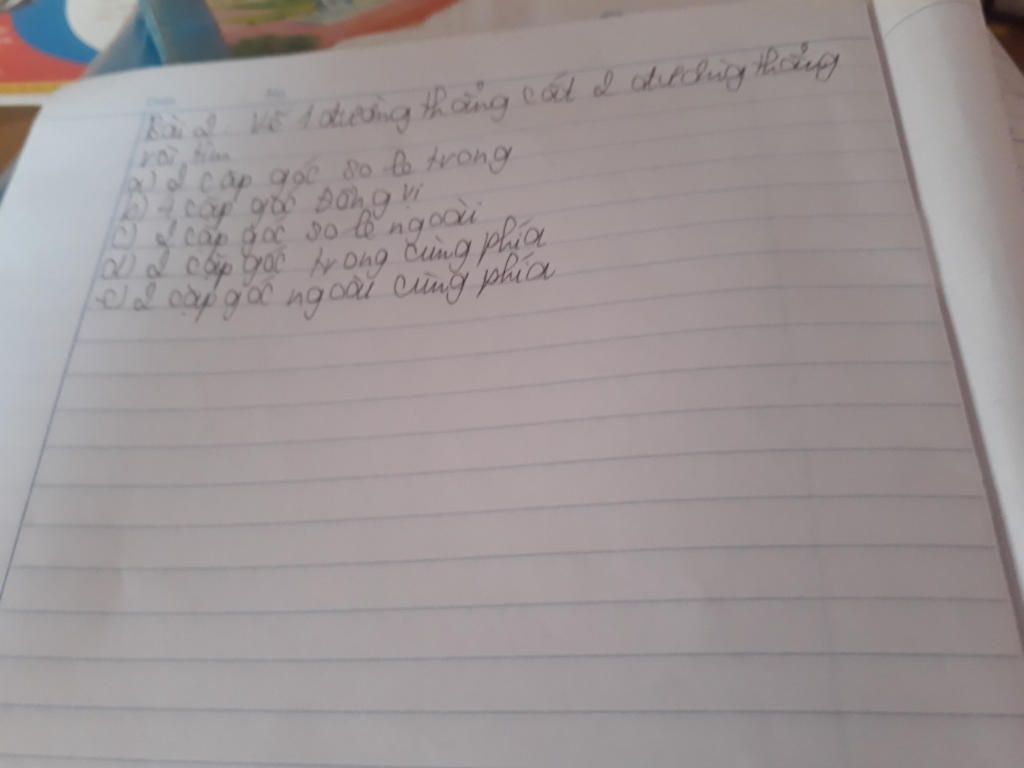 Bài 2. Vẽ 1 đường thẳng cắt 2 đường thẳng
rồi tìm
a) 2 cặp góc so le trong
b) 4 cặp góc đồng vị
c) 2 cặp góc so le ngoài
d) 2 cặp góc trong cùng phía
e) 2 cặp góc ngoài cùng phía